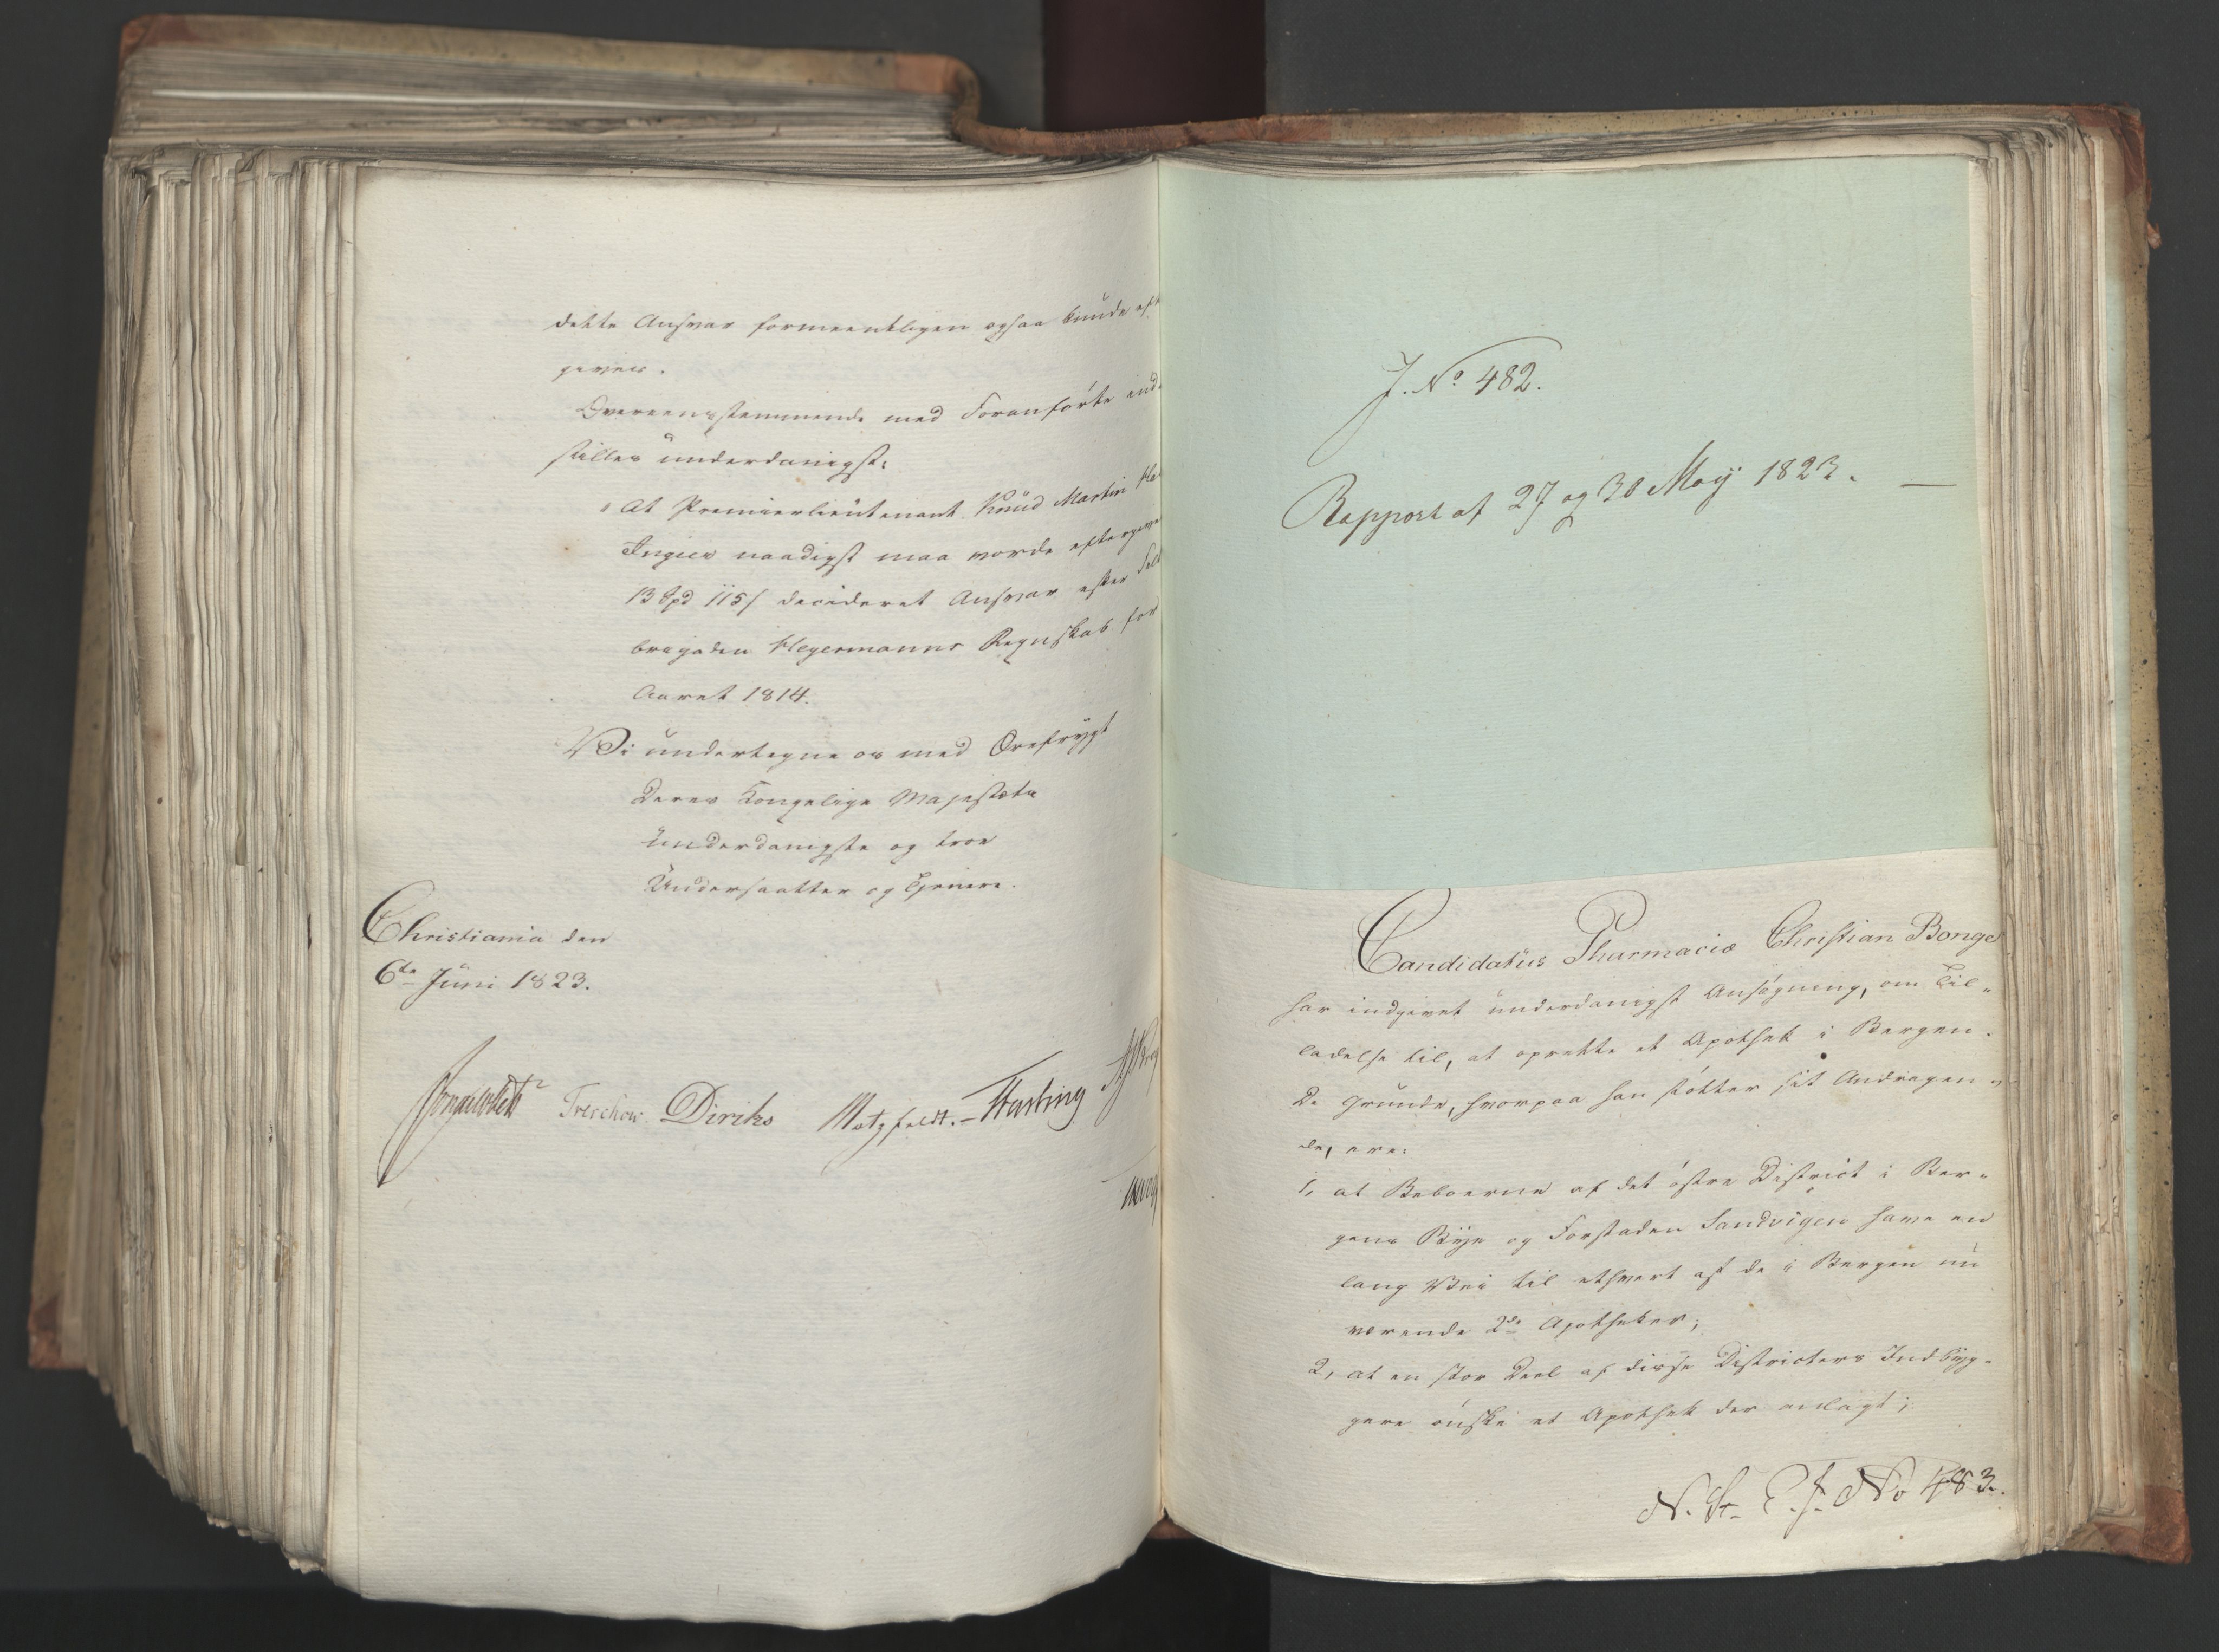 dette Ansvar formeentligen ogsaa kunde eft
gives.
Overeensstemmende med Foranførte ind-
stilles underdanigst:
At Premierlieutenant Knud Martin
Ingier naadigst maa vorde eftergive
13 Spd 115 s decideret Ansvar efter Felt
brigaden Hegermanns Regnskab for
Aaret 1814.
Vi undertegne os med Ærefrygt
Deres Kongelige Majestæts
underdanigste og troe
Undersaatter og Tjenere.
Christiania den
6te Juni 1823.
Treschow. Diriks Motzfeldt. Fasting
J. No 482.
Rapport af 27 og 30 May 1823. —
Candidatus Pharmaciæ Christian Bonge
har indgivet underdanigst Ansøgning, om Til-
ladelse til, at oprette et Apothek i Bergen.
De Grunde, hvorpaa han støtter sit Andragen-
de, ere:
1, at Beboerne af det østre District i Ber-
gens Bye og Forstaden Sandvigen have en
lang Vei til ethvert af de i Bergen nu
værende 2de Apotheker;
2, at en stor Deel af disse Districters Indbyg-
gere ønske et Apothek der anlagt;
N. St. E. J. No 483.